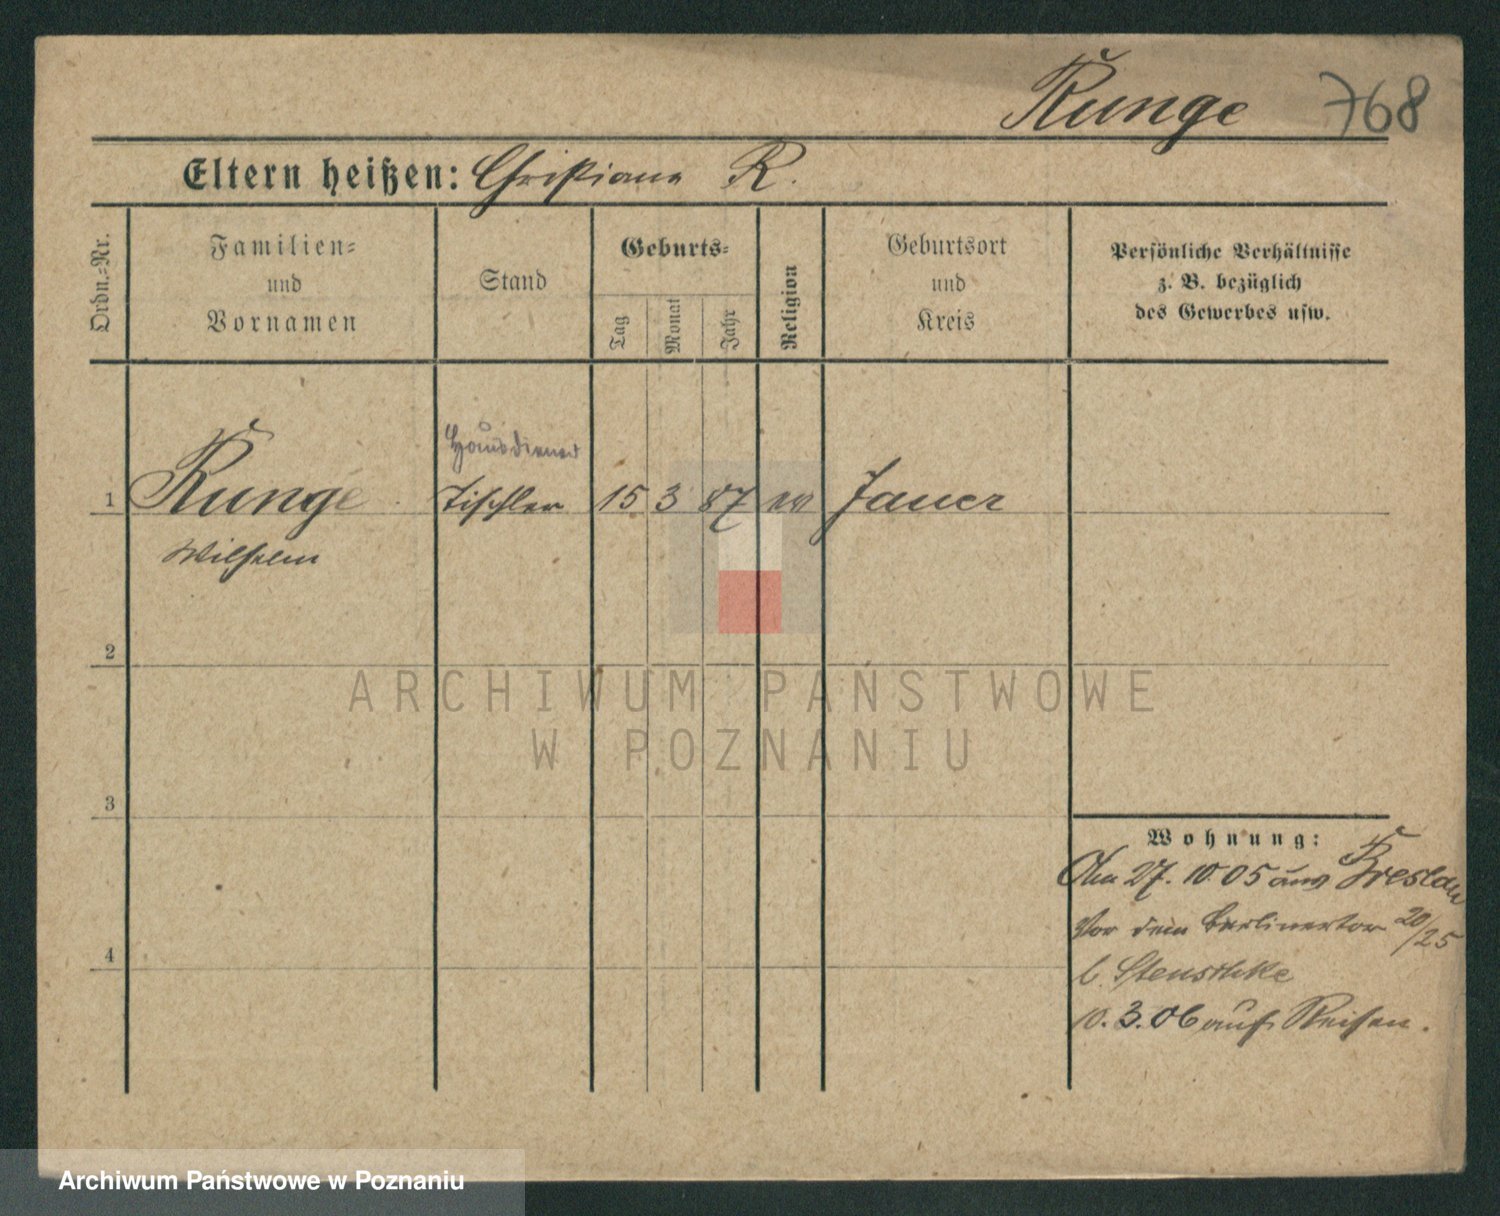 Runge 768
Eltern heißen: Christiane R.
Ordn.-Nr.
Familien-
und
Vornamen
Stand
Geburts-
Tag
Monat
Jahr
Religion
Geburtsort
und
Kreis
Persönliche Verhältnisse
z. B. bezüglich
des Gewerbes usw.
Hausdiener
1 Runge Tischler 15 3 87 ev Jauer
Wilhelm
2
ARCHIWUM PAŃSTWOWE
W POZNANIU
3
Wohnung:
27. 10 05 aus Breslau
Vor dem Berlinertor 20/25
b.
4
10. 3. 06 auf Reisen.
Archiwum Państwowe w Poznaniu